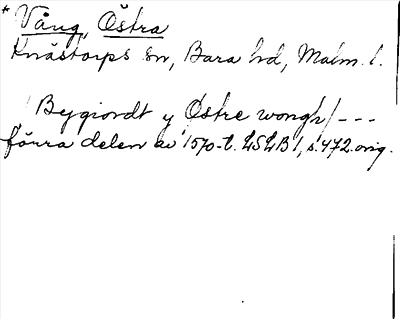 * Vång, Östra
Knästorps sn, Bara hd, Malm. l.
Bygiordt y Østre wongh/ - - -
förra delen av 1570-t. LSLB 1, s. 472. orig.